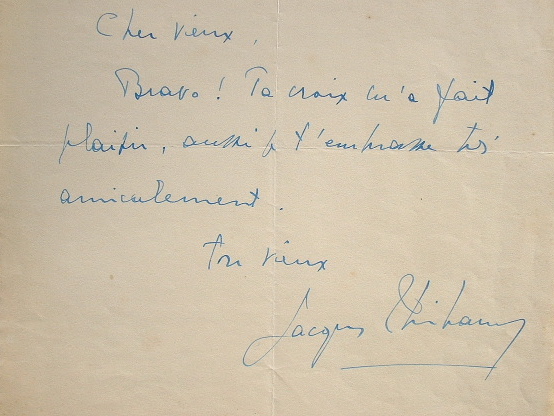 Cher vieux,
Bravo ! Ta croix m'a fait
plaisir, aussi je t'embrasse très
amicalement.
Ton vieux
Jacques Thibaud